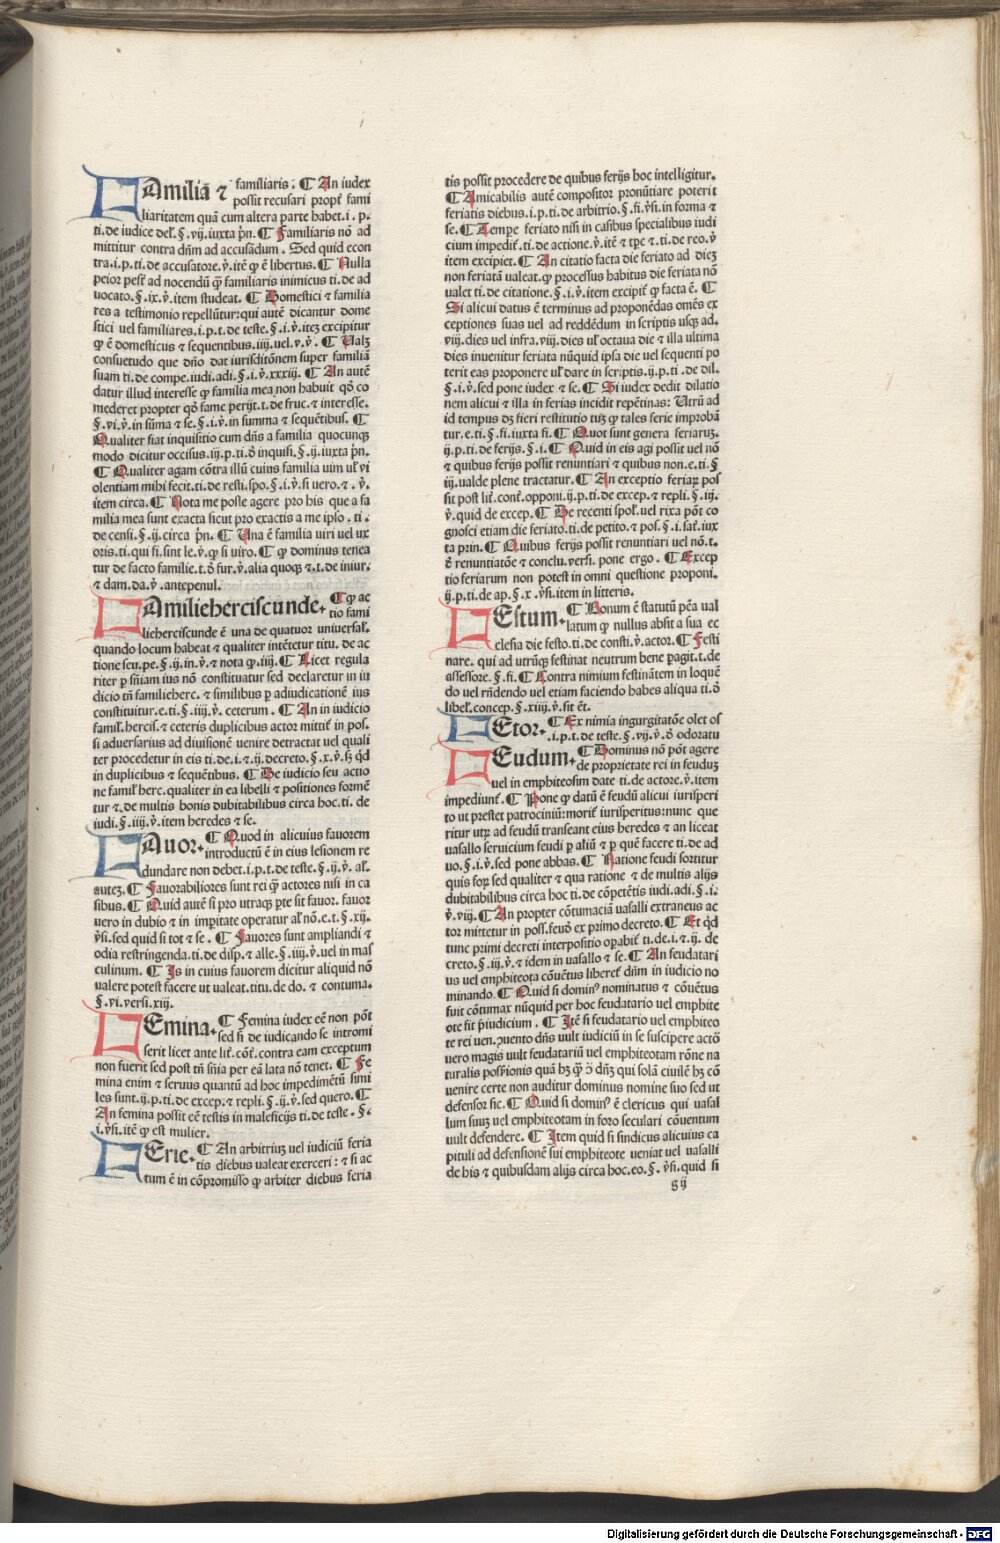 FAmiliā ⁊ familiaris. ¶ An iudex
possit recusari propt̄ fami
liaritatem quā cum altera parte habet. i. p.
ti. de iudice del̄. §. vij. iuxta p̄n. ¶ Familiaris nō ad
mittitur contra dn̄m ad accusādum. Sed quid econ
tra. i. p. ti. de accusatore. v̄. itē ꝙ ē libertus. ¶ Nulla
peior pest̄ ad nocendū ꝙ̄ familiaris inimicus ti. de ad
uocato. §. ix. v̄. item studeat. ¶ Domestici ⁊ familia
res a testimonio repellūtur: qui autē dicantur dome
stici uel familiares. i. p. t. de teste. §. i. v̄. iteꝫ excipitur
ꝙ ē domesticus ⁊ sequentibus. iiij. uel. v. v̄. ¶ Ualꝫ
consuetudo que dn̄o dat iurisditōnem super familiā
suam ti. de compe. iudi. adi. §. i. v̄. xxxiij. ¶ An autē
datur illud interesse ꝙ familia mea non habuit qd̄ co
mederet propter qd̄ fame perijt. t. de fruc. ⁊ interesse.
§. vi. v̄. in sūma ⁊ se. §. i. v̄. in summa ⁊ sequētibus. ¶
Qualiter fiat inquisitio cum dn̄s a familia quocunqꝫ
modo dicitur occisus. iij. p. ti. d̄ inquisi. §. ij. iuxta p̄n.
¶ Qualiter agam cōtra illū cuius familia uim ul̄ vi
olentiam mihi fecit. ti. de resti. spo. §. i. v̄. si uero. ⁊. v̄.
item circa. ¶ Nota me posse agere pro his que a fa
milia mea sunt exacta sicut pro exactis a me ipso. ti.
de censi. §. ij. circa p̄n. ¶ Una ē familia uiri vel ux
oris. ti. qui fi. sint le. v̄. ꝙ si uiro. ¶ ꝙ dominus tenea
tur de facto familie. t. d̄ fur. v̄. alia quoqꝫ ⁊. t. de iniur.
⁊ dam. da. v̄. antepenul.
FAmilieherciscunde. ¶ ꝙ ac
tio fami
lieherciscunde ē una de quatuor uniuersal̄.
quando locum habeat ⁊ qualiter intētetur titu. de ac
tione seu. pe. §. ij. in. v̄. ⁊ nota ꝙ. iij. ¶ Licet regula
riter p sn̄iam ius nō constituatur sed declaretur in iu
dicio tn̄ familieherc. ⁊ similibus p adiudicationē ius
constituitur. e. ti. §. iiij. v̄. ceterum. ¶ An in iudicio
famil̄. hercis. ⁊ ceteris duplicibus actor mittit̄ in pos.
si aduersarius ad diuisionē uenire detractat uel quali
ter procedetur in eis ti. de. i. ⁊ ij. decreto. §. x. v̄. sꝫ qd̄
in duplicibus ⁊ sequētibus. ¶ De iudicio seu actio
ne famil̄ herc. qualiter in ea libelli ⁊ positiones formē
tur ⁊. de multis bonis dubitabilibus circa hoc. ti. de
iudi. §. iij. v̄. item heredes ⁊ se.
FAuor. ¶ Quod in alicuius fauorem
introductū ē in eius lesionem re
dundare non debet. i. p. t. de teste. §. ij. v̄. al̄.
auteꝫ. ¶ Fauorabiliores sunt rei ꝙ̄ actores nisi in ca
sibus. ¶ Quid autē si pro utraqꝫ pte sit fauor. fauor
uero in dubio ⁊ in impitate operatur al̄ nō. e. t. §. xij.
v̄si. sed quid si tot ⁊ se. ¶ Fauores sunt ampliandi ⁊
odia restringenda. ti. de disp. ⁊ alle. §. iiij. v̄. uel in mas
culinum. ¶ Is in cuius fauorem dicitur aliquid nō
valere potest facere ut ualeat. titu. de do. ⁊ contuma.
§. vi. versi. xiij.
FEmina. ¶ Femina iudex eē non pōt
sed si de iudicando se intromi
serit licet ante lit̄. cōt̄. contra eam exceptum
non fuerit sed post tn̄ sn̄ia per eā lata nō tenet. ¶ Fe
mina enim ⁊ seruus quantū ad hoc impedimētū simi
les sunt. ij. p. ti. de excep. ⁊ repli. §. ij. v̄. sed quero. ¶
An femina possit eē testis in maleficijs ti. de teste. §.
i. v̄si. itē ꝙ est mulier.
FErie. ¶ An arbitriuꝫ uel iudiciū feria
tis diebus ualeat exerceri: ⁊ si ac
tum ē in cōpromisso ꝙ arbiter diebus feria
tis possit procedere de quibus ferijs hoc intelligitur.
¶ Amicabilis autē compositor pronūtiare poterit
feriatis diebus. i. p. ti. de arbitrio. §. fi. v̄si. in forma ⁊
se. ¶ Tempe feriato nisi in casibus specialibus iudi
cium impedit̄. ti. de actione. v̄. itē ⁊ tp̄e ⁊. ti. de reo. v̄
item excipiet. ¶ An citatio facta die feriato ad dieꝫ
non feriatā ualeat. ꝙ processus habitus die feriata nō
valet ti. de citatione. §. i. v̄. item excipit̄ ꝙ facta ē. ¶
Si alicui datus ē terminus ad proponēdas omēs ex
ceptiones suas uel ad reddēdum in scriptis usqꝫ ad.
viij. dies uel infra. viij. dies ul̄ octaua die ⁊ illa ultima
dies inuenitur feriata nūquid ipsa die uel sequenti po
terit eas proponere ul̄ dare in scriptis. ij. p. ti. de dil.
§. i. v̄. sed pone iudex ⁊ se. ¶ Si iudex dedit dilatio
nem alicui ⁊ illa in ferias incidit repētinas: Utrū ad
id tempus dꝫ fieri restitutio tuꝫ ꝙ tales ferie improbā
tur. e. ti. §. fi. iuxta fi. ¶ Quot sunt genera feriaruꝫ.
ij. p. ti. de ferijs. §. i. ¶ Quid in eis agi possit uel nō
⁊ quibus ferijs possit renuntiari ⁊ quibus non. e. ti. §
iij. ualde plene tractatur. ¶ An exceptio feriaꝝ pos
sit post lit̄. cont̄. opponi. ij. p. ti. de excep. ⁊ repli. §. iij.
v̄. quid de excep. ¶ De recenti spol̄. uel rixa pōt co
gnosci etiam die feriato. ti. de petito. ⁊ pos. §. i. sat̄. iux
ta prin. ¶ Quibus ferijs possit renuntiari uel nō. t.
d̄ renuntiatōe ⁊ conclu. versi. pone ergo. ¶ Excep
tio feriarum non potest in omni questione proponi.
ij. p. ti. de ap. §. x. v̄si. item in litteris.
FEstum. ¶ Bonum ē statutū pēa ual
latum ꝙ nullus absit a sua ec
clesia die festo. ti. de consti. v̄. actor. ¶ Festi
nare. qui ad utrūqꝫ festinat neutrum bene pagit. t. de
assessore. §. fi. ¶ Contra nimium festinātem in loquē
do uel rn̄dendo uel etiam faciendo habes aliqua ti. d̄
libel̄. concep. §. xiiij. v̄. sit ēt.
FEtor. ¶ Ex nimia ingurgitatōe olet os
. i. p. t. de teste. §. vij. v̄. d̄ odoratu
FEudum. ¶ Dominus nō pōt agere
de proprietate rei in feuduꝫ
uel in emphiteosim date ti. de actore. v̄. item
impediunt̄. ¶ Pone ꝙ datū ē feudū alicui iurisperi
to ut prestet patrociniū: morit̄ iurisperitus: nunc que
ritur utꝝ ad feudū transeant eius heredes ⁊ an liceat
uasallo seruicium feudi p aliū ⁊ p quē facere ti. de ad
uo. §. i. v̄. sed pone abbas. ¶ Ratione feudi sortitur
quis foꝝ sed qualiter ⁊ qua ratione ⁊ de multis alijs
dubitabilibus circa hoc ti. de cōpetētis iudi. adi. §. i.
v̄. viij. ¶ An propter cōtumaciā uasalli extraneus ac
tor mittetur in poss. feud̄ ex primo decreto. ¶ Et qd̄
tunc primi decreti interpositio opabit̄ ti. de. i. ⁊. ij. de
creto. §. iij. v̄. ⁊ idem in uasallo ⁊ se. ¶ An feudatari
us uel emphiteota cōuētus liberet̄ dn̄m in iudicio no
minando. ¶ Quid si dominꝰ nominatus ⁊ cōuētus
fuit cōtumax nūquid per hoc feudatario uel emphite
ote fit p̄iudicium. ¶ Itē si feudatario uel emphiteo
te rei uen. ꝯuento dn̄s uult iudiciū in se suscipere actō
uero magis uult feudatariū uel emphiteotam rōne na
turalis poss̄ionis quā hꝫ ꝙ̄ d̄ dn̄ꝫ qui solā ciuilē hꝫ cō
uenire certe non auditur dominus nomine suo sed ut
defensor sic. ¶ Quid si dominꝰ ē clericus qui uasal
lum suuꝫ uel emphiteotam in foro seculari cōuentum
uult defendere. ¶ Item quid si sindicus alicuius ca
pituli ad defensionē sui emphiteote ueniat uel uasalli
de his ⁊ quibusdam alijs circa hoc. eo. §. v̄si. quid si
g ij
Digitalisierung gefördert durch die Deutsche Forschungsgemeinschaft - DFG